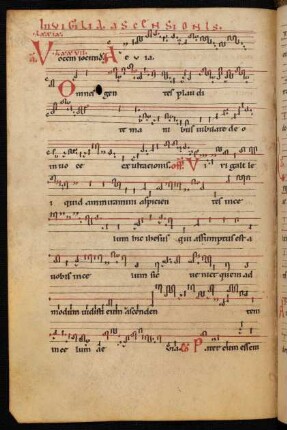 In vigilia ascensionis.
Vocem iocund. A e v ia.
Omnes gen tes plau di
te ma ni bus iubilate de o
in uo ce exultacionis. Of. Viri galile
i quid ammiramini aspicien tes in ce
lum hic ihesus qui assumptus est a
uobis in ce lum sic ue niet quem ad
modum uidistis eum ascenden tem
in ce lum ae uia. Co. Pater cum essem